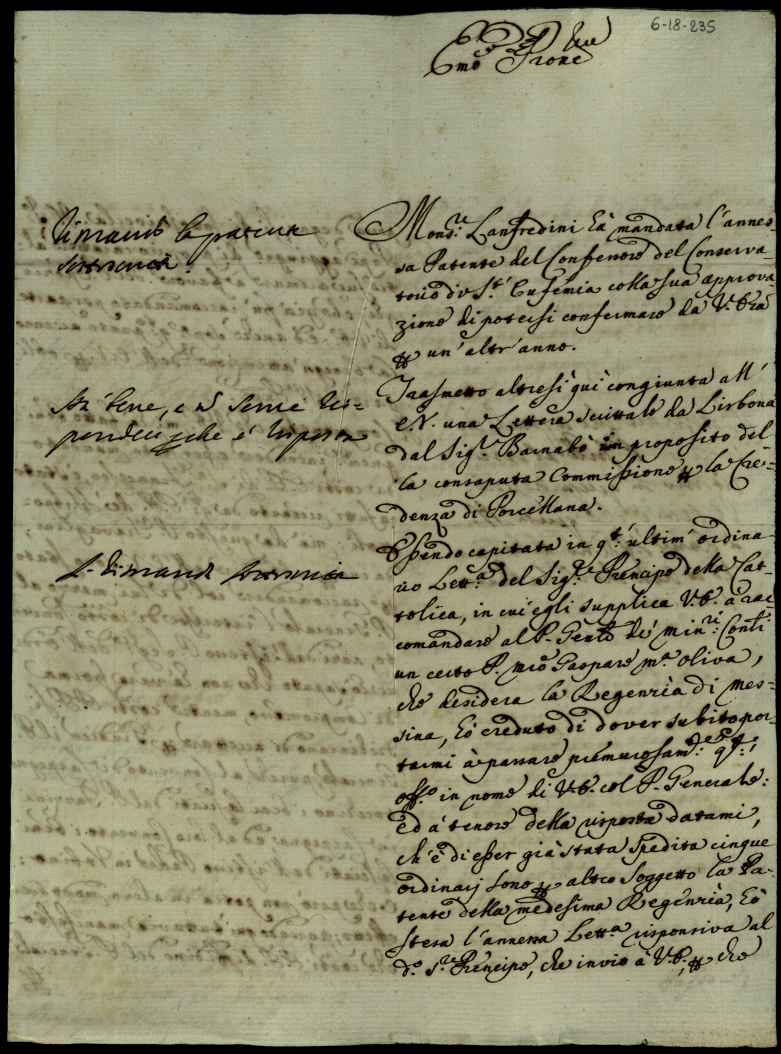 6-18-235
Emo Prone
Rimando la patente
sottoscritta.
Mons.re Lanfredini hà mandata l'annes-
sa Patente del Confessore del Conserva-
torio di S.ta Eufemia colla sua approva-
zione di potersi confermare da V. Em.a
per un'altr'anno.
Stà bene, e
per che è risposta
Trasmetto altresì quì congiunta all'
E.V. una Lettera scrittale da Lisbona
dal Sig.r Barnabò in proposito del-
la consaputa Commissione per la Cre-
denza di Porcellana.
Si rimanda sottoscritta
Essendo capitata in q.t' ultim' ordina-
rio Lett.a del Sig.re Prencipe della Cat-
tolica, in cui egli supplica V.E. à rac-
comandare al P. Genle de' Min.ri Conli
un certo P. mro Gaspare M.a Oliva,
che desidera la Regenzia di Mes-
sina, hò creduto di dover subito por-
tarmi à passare premurosam.te q.to
off.o in nome di V.E. col P. Generale:
ed à tenore della risposta datami,
ch'è di esser già stata spedita cinque
ordinarj sono per altro Soggetto la Pa-
tente della medesima Regenzia, hò
stesa l'annessa Lett.a risponsiva al
d.o S.re Prencipe, che invio à V.E., per che